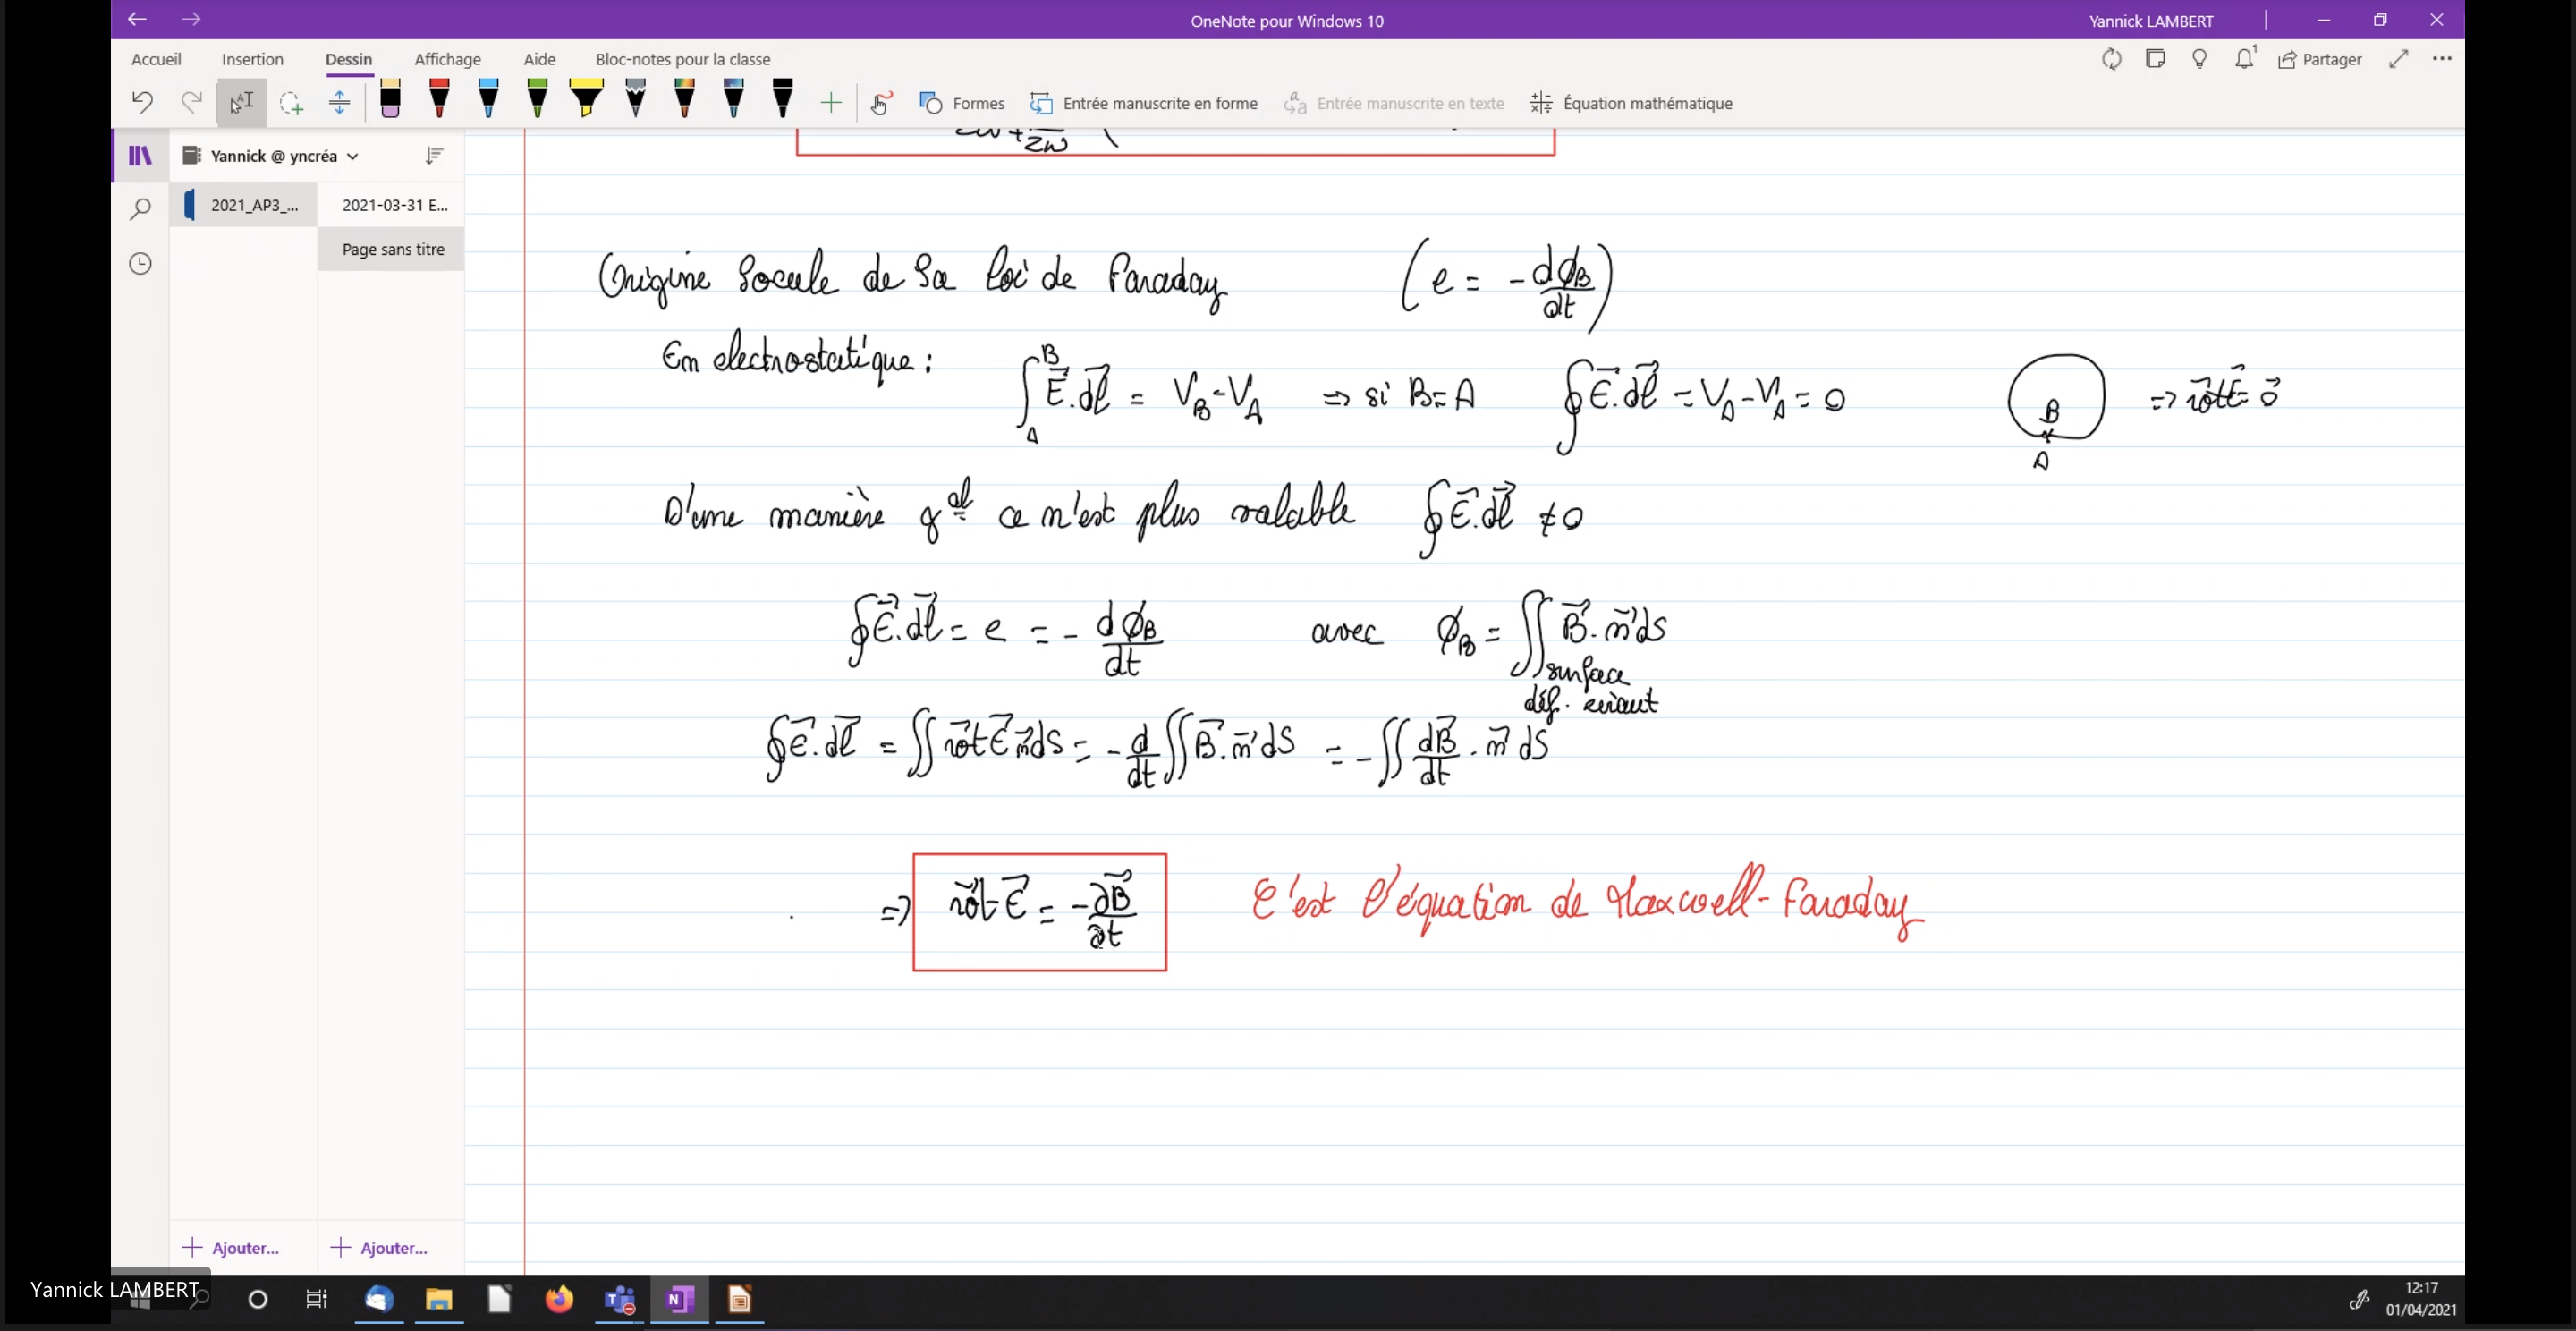 OneNote pour Windows 10
Yannick LAMBERT
Accueil Insertion Dessin Affichage Aide Bloc-notes pour la classe
1 Partager
Formes Entrée manuscrite en forme Entrée manuscrite en texte Équation mathématique
Yannick @ yncréa
2021_AP3_... 2021-03-31 E...
Page sans titre
2ω
Origine locale de la loi de Faraday (e = -dϕ_B/dt)
En electrostatique : ∫_A^B E⃗.dl⃗ = V_B - V_A => si B=A ∮E⃗.dl⃗ = V_A - V_A = 0 B A => rot⃗E⃗ = 0⃗
D'une manière gal ce n'est plus valable ∮E⃗.dl⃗ ≠ 0
∮E⃗.dl⃗ = e = - dϕ_B/dt avec ϕ_B = ∬ B⃗.n⃗ dS
surface
∮E⃗.dl⃗ = ∬ rot⃗E⃗ n⃗ dS = - d/dt ∬ B⃗.n⃗ dS = - ∬ dB⃗/dt . n⃗ dS
=> rot⃗E⃗ = -∂B⃗/∂t C'est l'équation de Maxwell-Faraday
Ajouter... Ajouter...
Yannick LAMBERT
12:17
01/04/2021